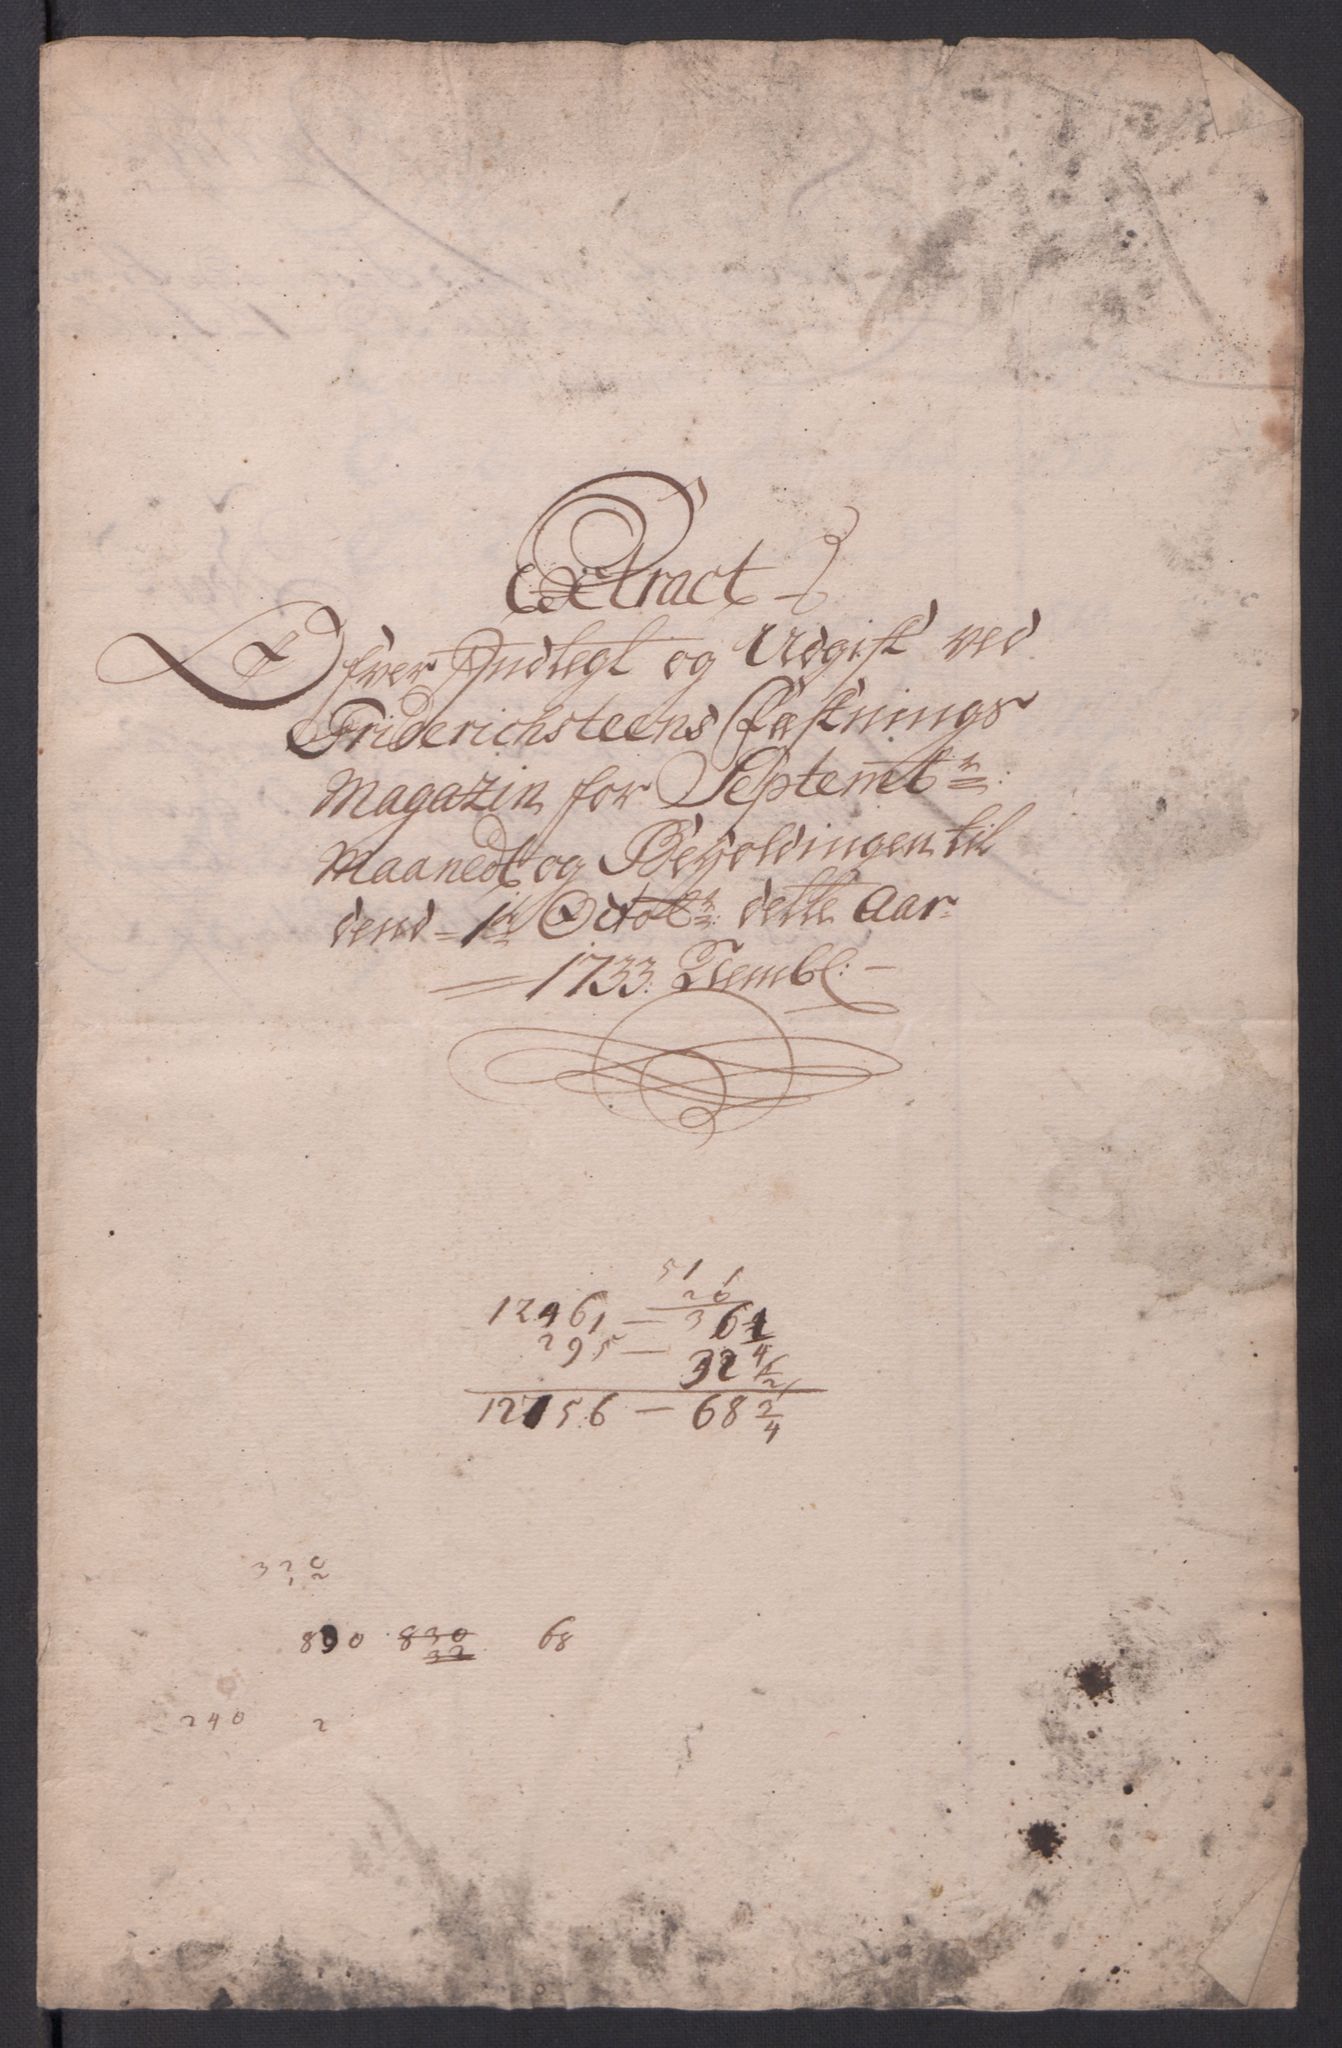 Extract
Ofver Indlegt og Udgift ved
Friderichsteens Fæstnings
Magazin for Septembr:
Maanedt og Beholdingen til
dend 1te Octobr: dette Aar
1733
51 1
26
12461 — 36 1/4
295 — 32 1/2
12756 — 68 2/4
890 830 68
32
240 2